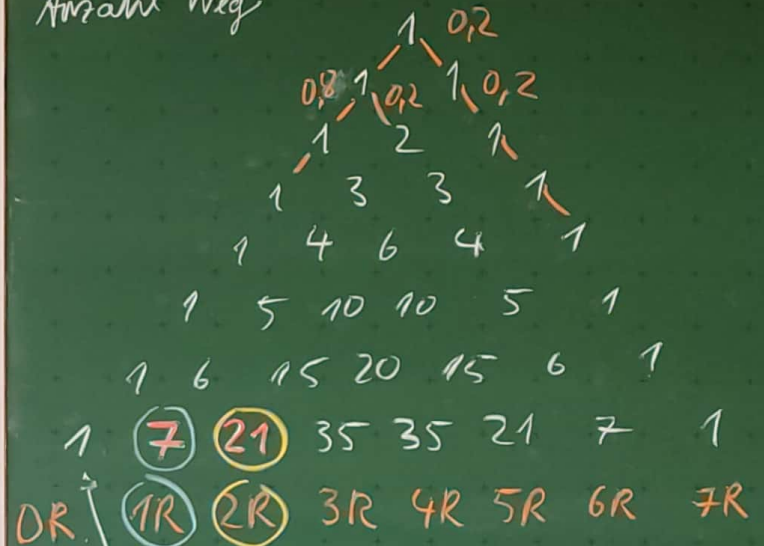 Anzahl Weg
1 0,2
0,8 1 0,2 1 0,2
1 2 1
1 3 3 1
1 4 6 4 1
1 5 10 10 5 1
1 6 15 20 15 6 1
1 7 21 35 35 21 7 1
0R 1R 2R 3R 4R 5R 6R 7R